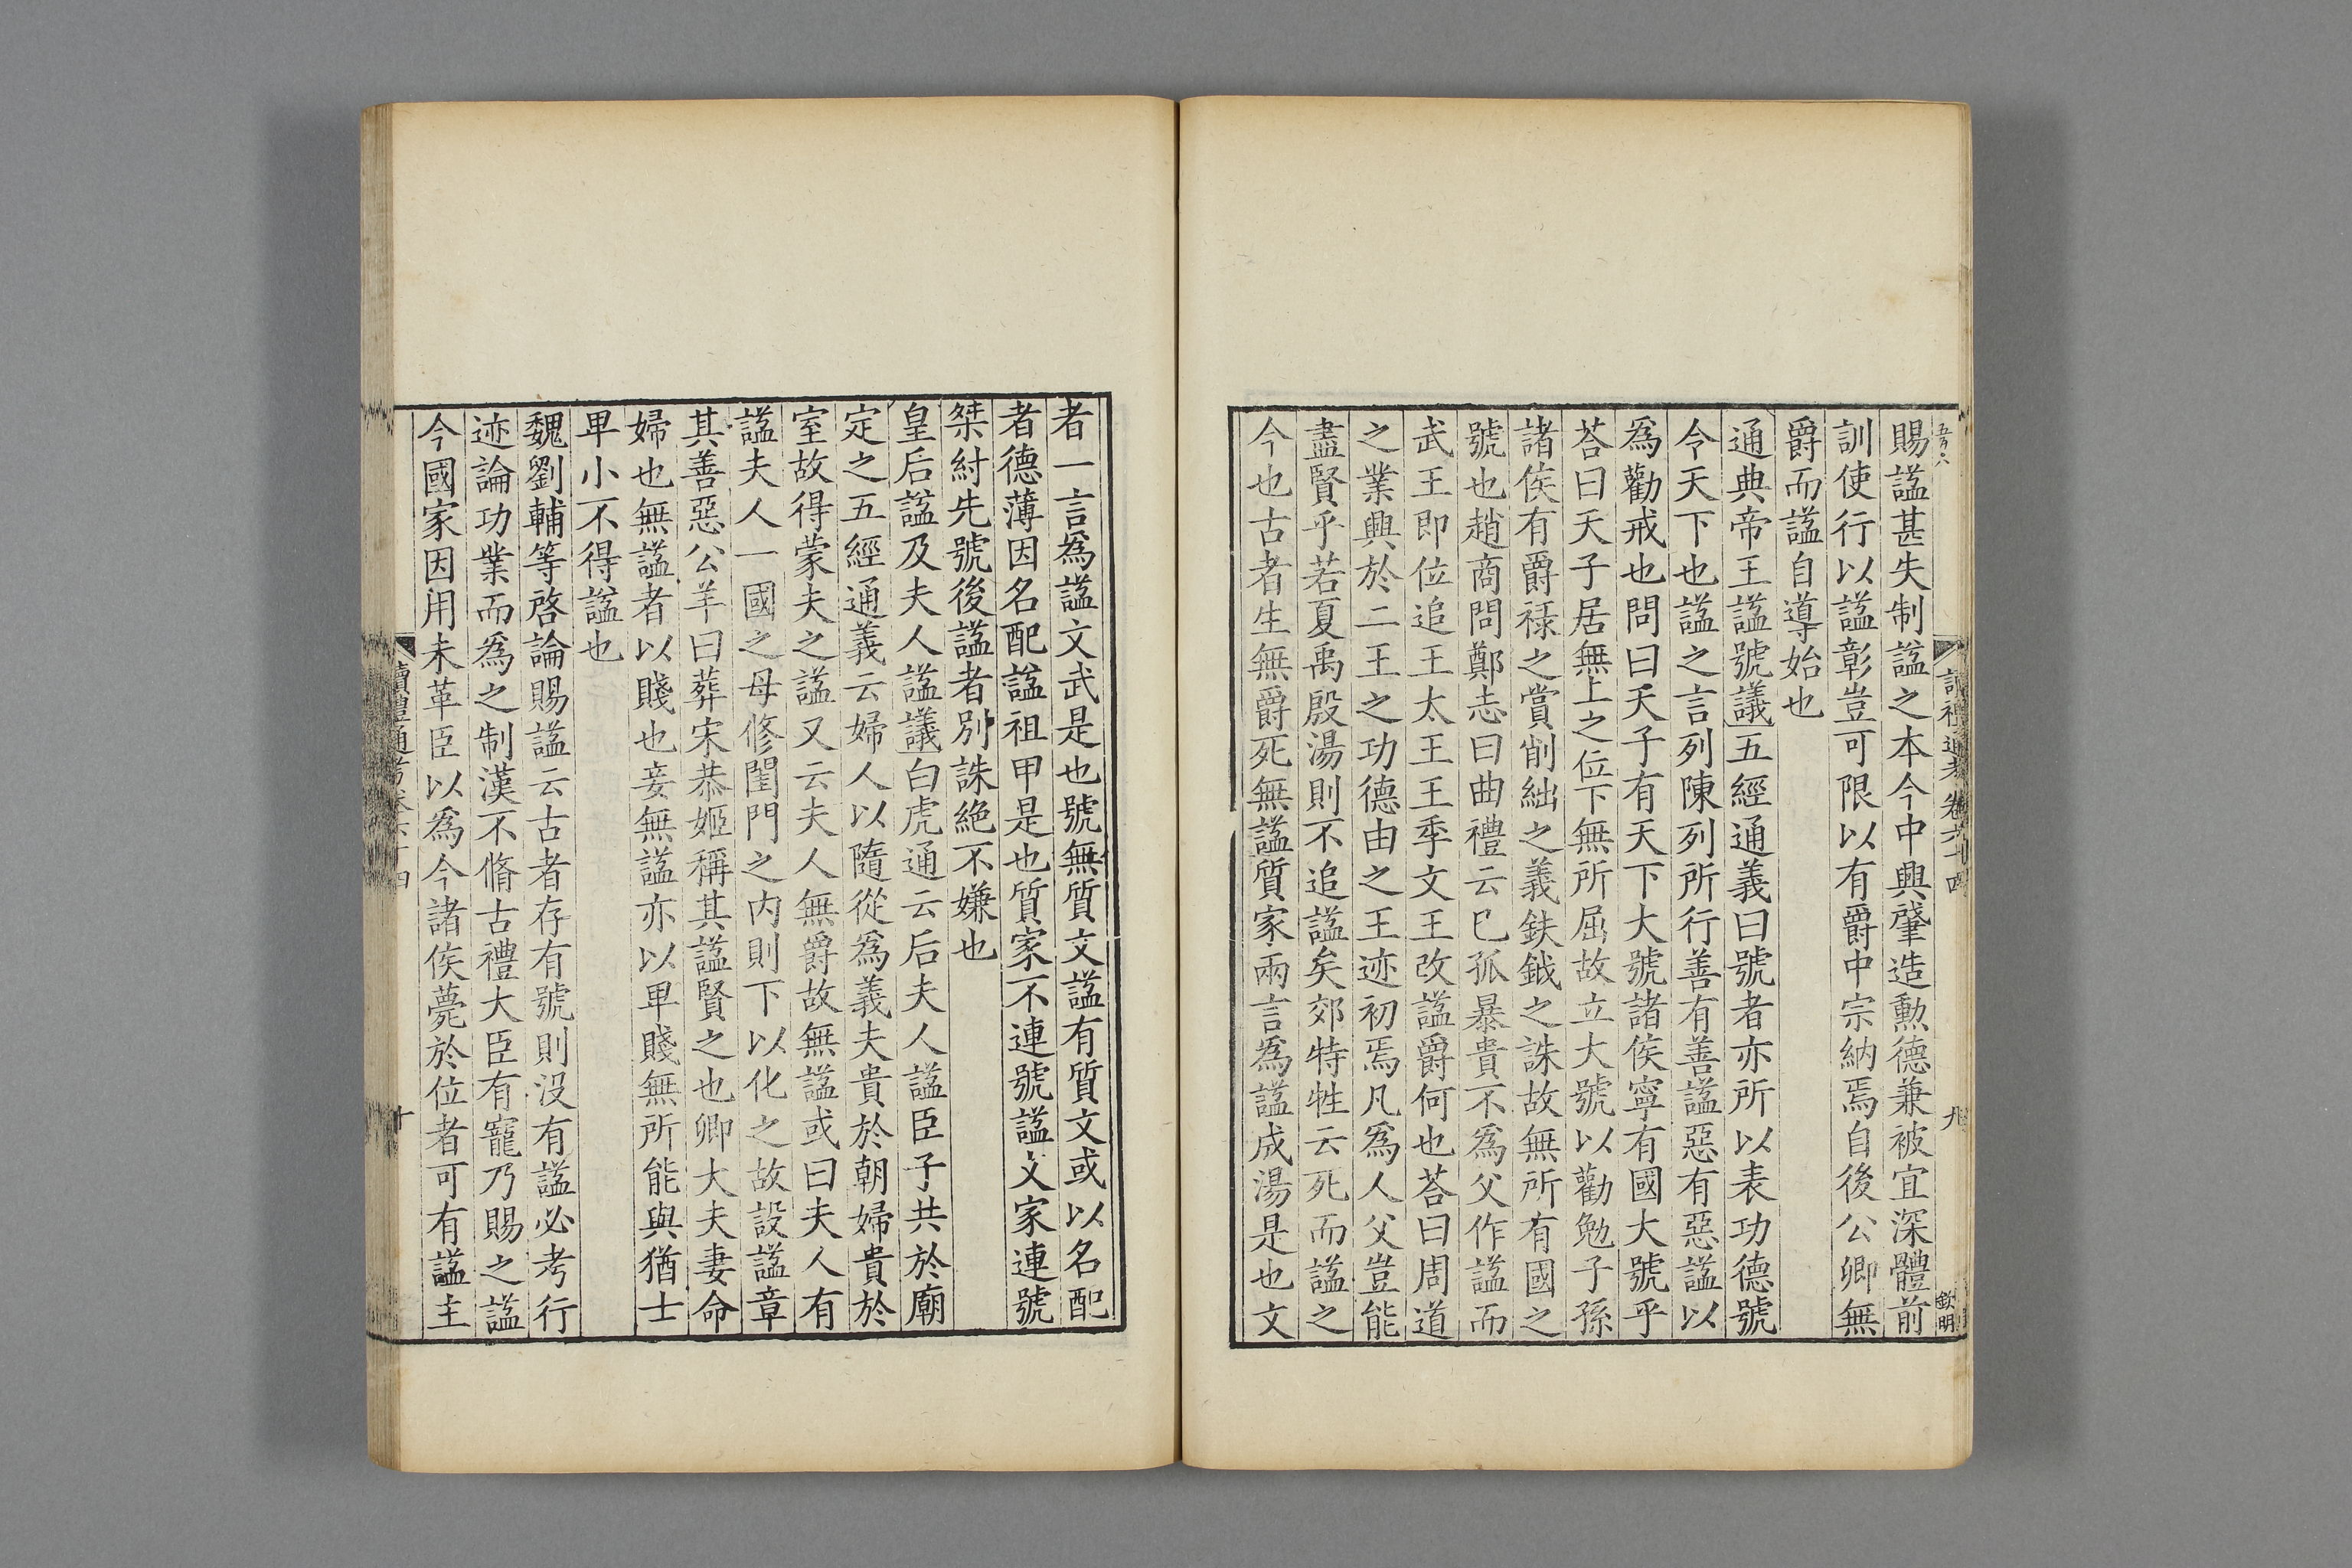 賜謚甚失制謚之本今中興肇造勲德兼被宜深體前
訓使行以謚彰豈可限以有爵中宗納焉自後公卿無
爵而謚自導始也
通典帝王謚號議五經通義曰號者亦所以表功德號
令天下也謚之言列陳列所行善有善謚惡有惡謚以
爲勸戒也問曰天子有天下大號諸侯寧有國大號乎
荅曰天子居無上之位下無所屈故立大號以勸勉子孫
諸侯有爵祿之賞削絀之義鈇鉞之誅故無所有國之
號也趙商問鄭志曰曲禮云巳孤暴貴不爲父作謚而
武王即位追王太王王季文王改謚爵何也荅曰周道
之業興於二王之功德由之王迹初焉凡爲人父豈能
盡賢乎若夏禹殷湯則不追謚矣郊特牲云死而謚之
今也古者生無爵死無謚質家兩言爲謚成湯是也文
者一言爲謚文武是也號無質文謚有質文或以名配
者德薄因名配謚祖甲是也質家不連號謚文家連號
桀紂先號後謚者別誅絕不嫌也
皇后謚及夫人謚議白虎通云后夫人謚臣子共於廟
定之五經通義云婦人以隨從爲義夫貴於朝婦貴於
室故得蒙夫之謚又云夫人無爵故無謚或曰夫人有
謚夫人一國之母修閨門之内則下以化之故設謚章
其善惡公羊曰葬宋恭姬稱其謚賢之也卿大夫妻命
婦也無謚者以賤也妾無謚亦以卑賤無所能與猶士
卑小不得謚也
魏劉輔等啓論賜謚云古者存有號則沒有謚必考行
迹論功業而爲之制漢不脩古禮大臣有寵乃賜之謚
今國家因用未革臣以爲今諸侯薨於位者可有謚主
讀禮通考卷六十四
九
欽明
讀禮通考卷六十四
十